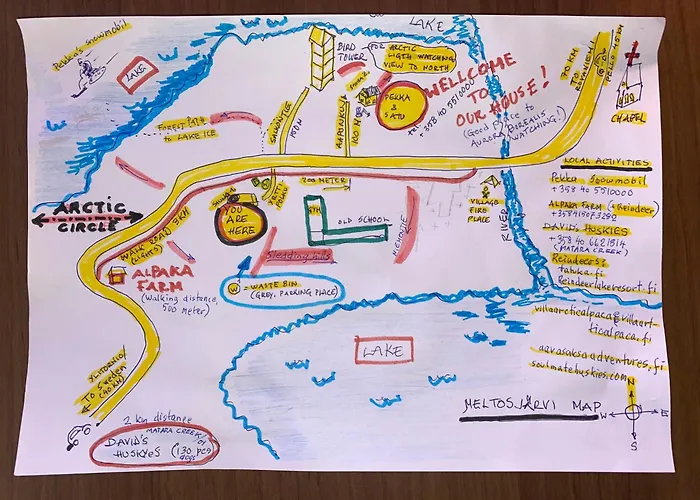 Pekka's snowmobil
LAKE
LAKE
BIRD
TOWER
FOR ARCTIC
LIGTH WATCHING
VIEW TO NORTH
WELLCOME
TO
OUR HOUSE!
(Good place to
AURORA BOREALIS
WATCHING!)
PEKKA
&
SATU
+358 40 5510000
70 KM
TO ROVANIEMI
PELLO 45 KM
CHAPEL
FOREST
to LAKE ICE
150 M
100 M
200 METER
ARCTIC
CIRCLE
WALK ROAD 3KM
(LIGHTS)
YOU
ARE
HERE
OLD SCHOOL
VILLAGE
FIRE
PLACE
RIVER
ALPAKA
FARM
(Walking distance,
500 meter)
W = WASTE BIN
(GREY, PARKING PLACE)
LAKE
TO Sweden
(40 KM)
2 km distance
MATARA CREEK
DAVID'S
HUSKYES
(130 pcs
dogs)
LOCAL ACTIVITIES
Pekka Snowmobil
+358 40 5510000
ALPAKA FARM (+Reindeer)
DAVID'S HUSKIES
+358 40 6621514
(MATARA CREEK)
Reindeers?
Reindeerlakeresort.fi
villaarcticalpaca@villaarc
ticalpaca.fi
aavasaksaadventures.fi
soulmatehuskies.com
MELTOSJÄRVI MAP
N
W
E
S